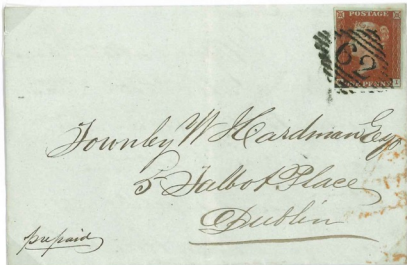 POSTAGE
62
Townley W Hardman Esq
5 Talbot Place
Dublin
prepaid